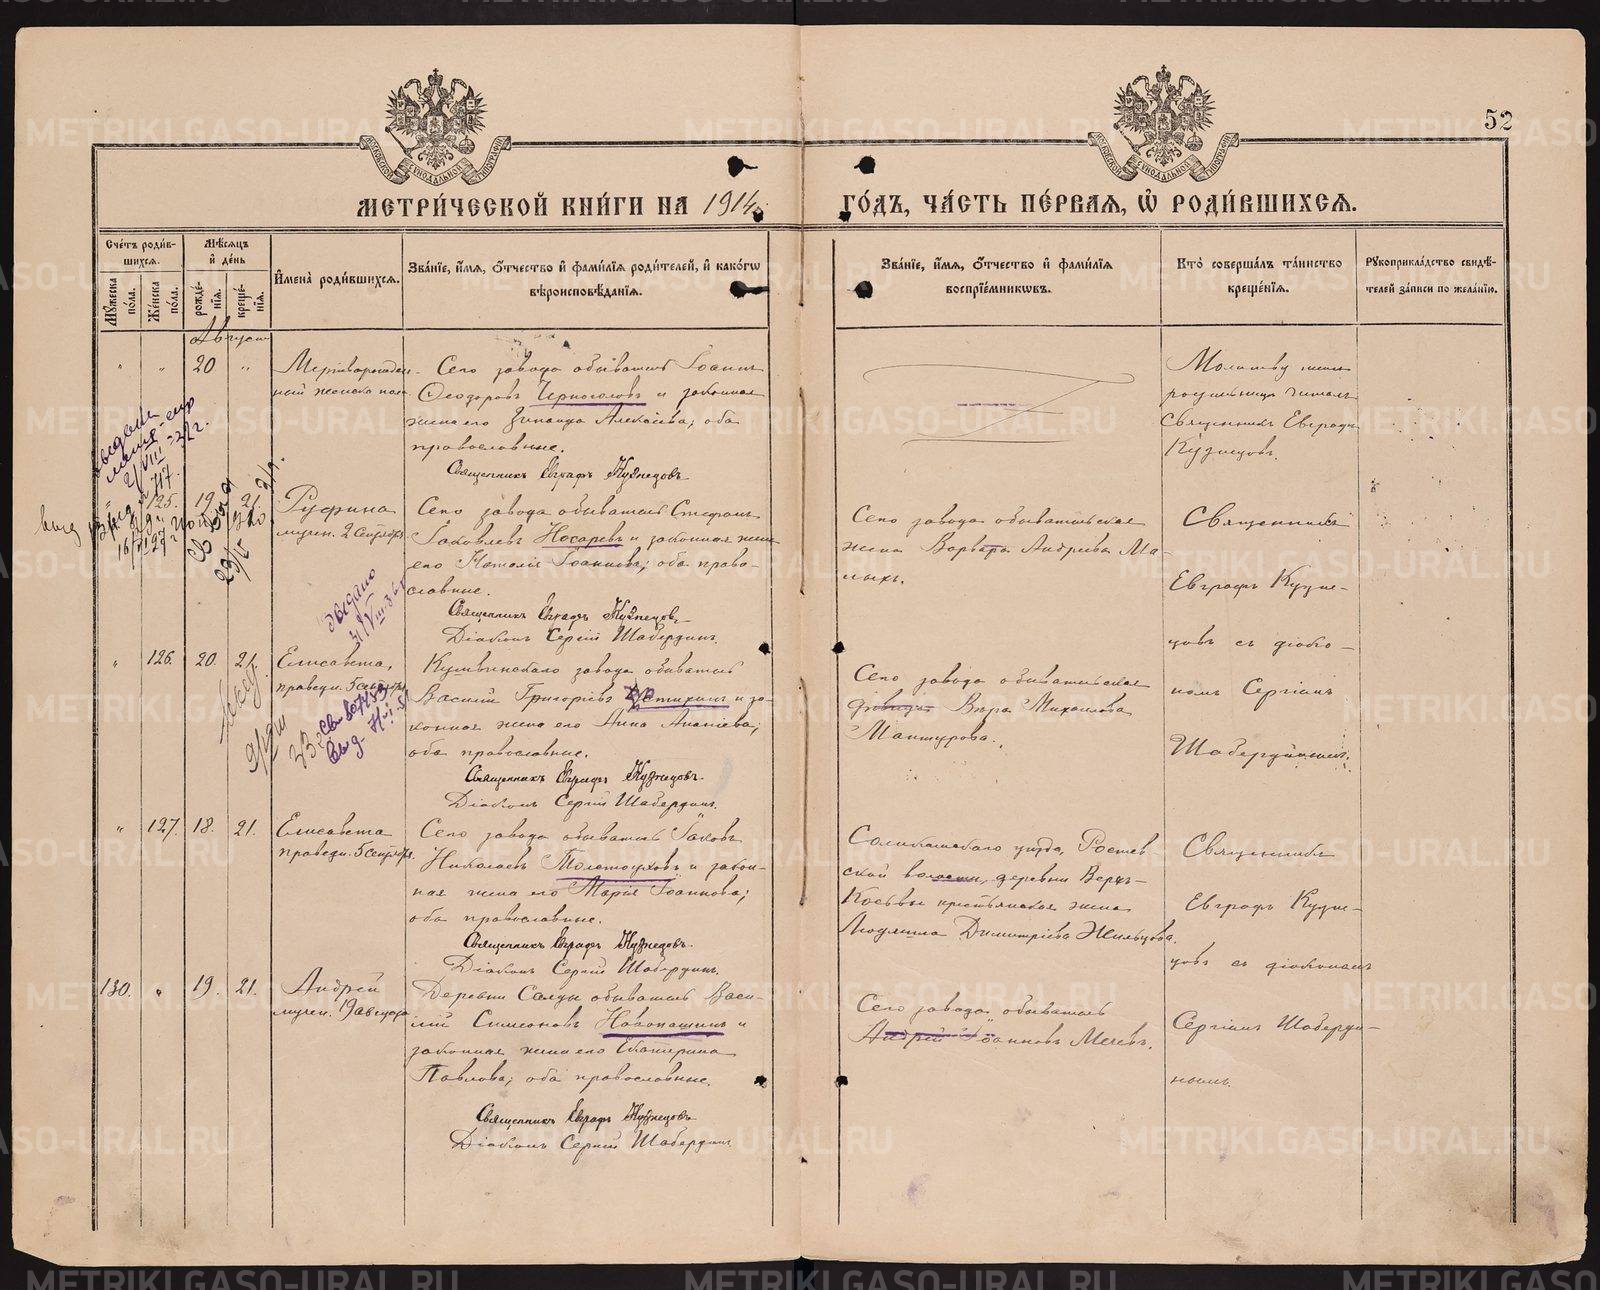 52
МЕТРИ́ЧЕСКОЙ КНИ́ГИ НА 1914 ГО́ДЪ, ЧА́СТЬ ПЕ́РВАЯ, Ѡ҆ РОДИ́ВШИХСЯ.
Сче́тъ роди́в-
шихся.
Мꙋ́жеска
по́ла.
Же́нска
по́ла.
Мѣ́сяцъ
и҆ де́нь
рожде́-
нїя.
креще́-
нїя.
И҆мена̀ роди́вшихся.
Зва́нїе, и҆́мя, ѻ҆́тчество и҆ фами́лїя роди́телей, и҆ како́гѡ
вѣроисповѣ́данїя.
Зва́нїе, и҆́мя, ѻ҆́тчество и҆ фами́лїя
воспрїе́мниковъ.
Кто̀ соверша́лъ та́инство
креще́нїя.
Рꙋкоприкла́дство свидѣ́-
телей за́писи по жела́нїю.
Августъ
" " 20 "
Мертворожден-
ный женска пол
Сего завода обыватель Іоаннъ
Ѳеодоровъ Черноголовъ и законная
жена его Зинаида Алексѣева; оба
православные.
Священникъ Евграфъ Кузнецовъ
Молитву
родильницѣ читалъ
Священникъ Евграфъ
Кузнецовъ.
" 125. 19. 21.
Руфина
мучен. 2 Сентября
Сего завода обыватель Стефанъ
Іаковлевъ Носаревъ и законная жена
его Наталія Іоаннова; оба право-
славные.
Священникъ Евграфъ Кузнецовъ
Діаконъ Сергій Шабердинъ.
Сего завода обывательская
жена Варвара Андреева Ма-
лыхъ.
Священникъ
Евграфъ Кузне-
цовъ съ діако-
номъ Сергіемъ
Шабердинымъ.
" 126. 20. 21.
Елисавета,
праведн. 5 сентября
Кушвинскаго завода обыватель
Василій Григорьевъ Устихинъ и за-
конная жена его Анна Ананіева;
оба православные.
Священникъ Евграфъ Кузнецовъ
Діаконъ Сергій Шабердинъ.
Сего завода обывательская
дѣвица Вѣра Михаилова
Мантурова.
" 127. 18. 21.
Елисавета
праведн. 5 сентября.
Сего завода обыватель Іаковъ
Николаевъ Толстоуховъ и закон-
ная жена его Марія Іоаннова;
оба православные.
Священникъ Евграфъ Кузнецовъ
Діаконъ Сергій Шабердинъ.
Соликамскаго уѣзда, Ростев
ской волости, деревни Верхъ-
Косьвы крестьянская жена
Людмила Димитріева Жильцова.
Священникъ
Евграфъ Кузне-
цовъ съ діакономъ
Сергіемъ Шаберди-
нымъ.
130. " 19. 21.
Андрей
мучен. 19 августа
Деревни Салды обыватель Васи-
лій Симеоновъ Новопашинъ и
законная жена его Екатерина
Павлова; оба православные.
Священникъ Евграфъ Кузнецовъ
Діаконъ Сергій Шабердинъ
Сего завода обыватель
Андрей Іоанновъ Мечевъ.
METRIKI.GASO-URAL.RU